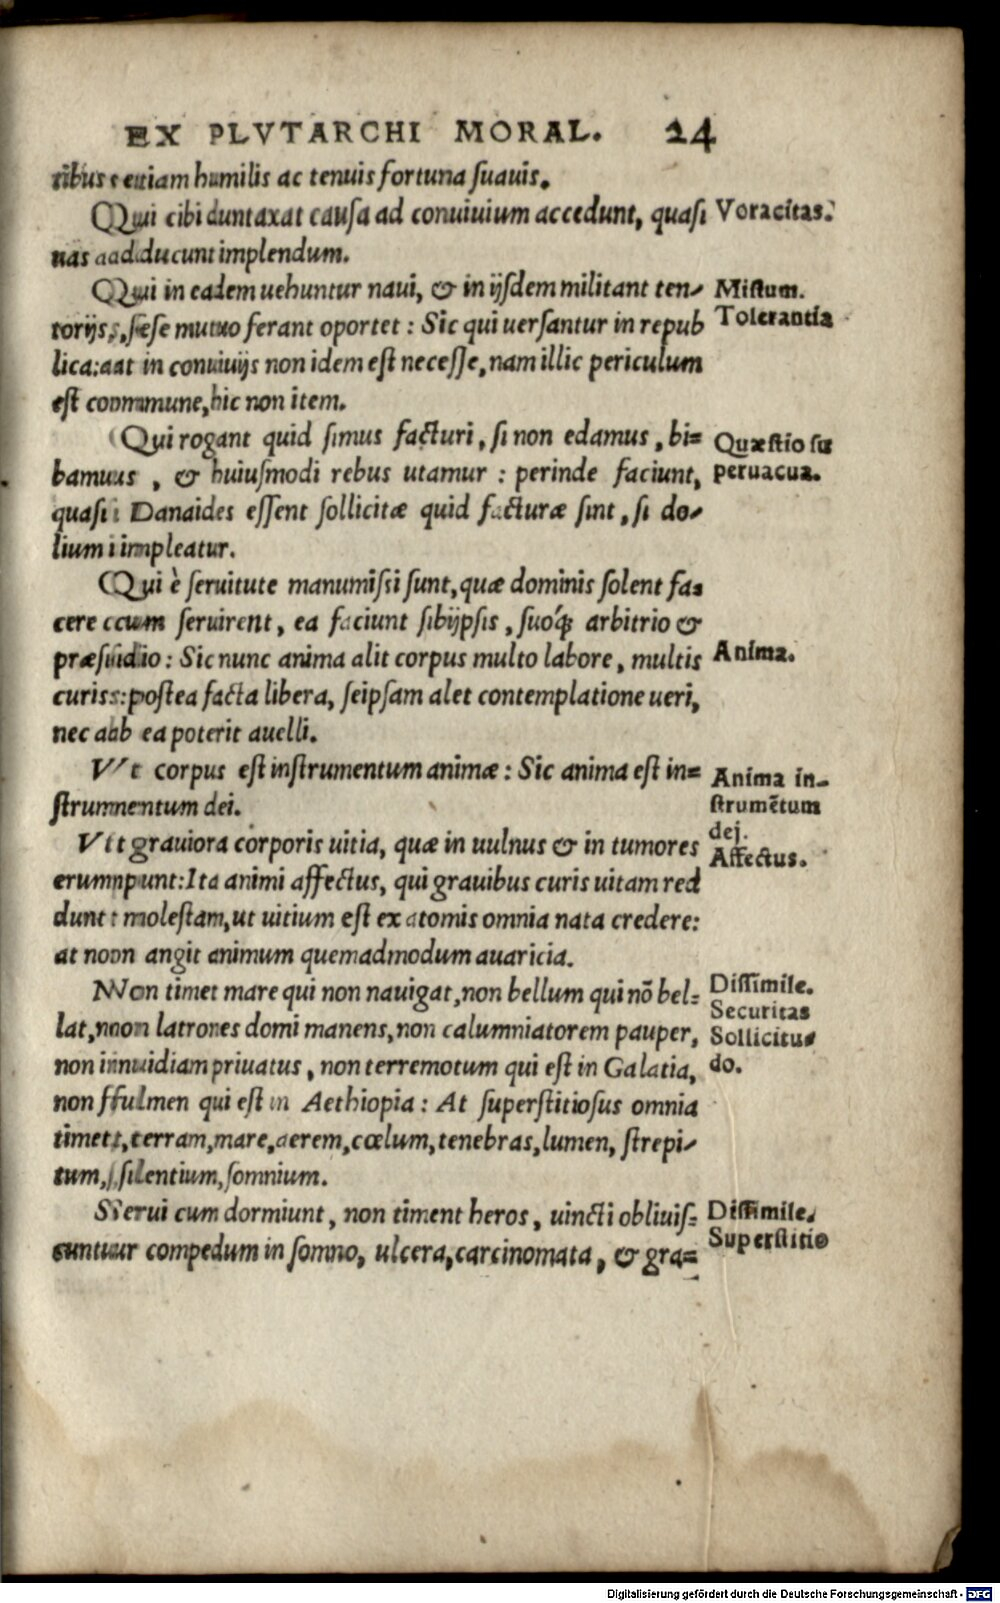 EX PLVTARCHI MORAL. 24
ribus etiam humilis ac tenuis fortuna suauis.
Qui cibi duntaxat causa ad conuiuium accedunt, quasi
uas ad ducunt implendum.
Voracitas.
Qui in eadem uehuntur naui, & in ijsdem militant ten-
torijs, sese mutuo ferant oportet: Sic qui uersantur in repub
lica: at in conuiuijs non idem est necesse, nam illic periculum
est commune, hic non item.
Mistum.
Tolerantia
Qui rogant quid simus facturi, si non edamus, bi=
bamus, & huiusmodi rebus utamur: perinde faciunt,
quasi Danaides essent sollicitæ quid facturæ sint, si do-
lium impleatur.
Quæstio su
peruacua.
Qui è seruitute manumissi sunt, quæ dominis solent fa=
cere cum seruirent, ea faciunt sibijpsis, suoq́; arbitrio &
præsidio: Sic nunc anima alit corpus multo labore, multis
curis: postea facta libera, seipsam alet contemplatione ueri,
nec ab ea poterit auelli.
Anima.
Vt corpus est instrumentum animæ: Sic anima est in=
strumentum dei.
Anima in-
strumẽtum
dei.
Vt grauiora corporis uitia, quæ in uulnus & in tumores
erumpunt: Ita animi affectus, qui grauibus curis uitam red
dunt molestam, ut uitium est ex atomis omnia nata credere:
at non angit animum quemadmodum auaricia.
Affectus.
Non timet mare qui non nauigat, non bellum qui nõ bel=
lat, non latrones domi manens, non calumniatorem pauper,
non inuidiam priuatus, non terremotum qui est in Galatia,
non fulmen qui est in Aethiopia: At superstitiosus omnia
timet, terram, mare, aerem, cœlum, tenebras, lumen, strepi-
tum, silentium, somnium.
Dissimile.
Securitas
Sollicitu-
do.
Serui cum dormiunt, non timent heros, uincti obliuis=
cuntur compedum in somno, ulcera, carcinomata, & gra=
Dissimile.
Superstitio
Digitalisierung gefördert durch die Deutsche Forschungsgemeinschaft - DFG